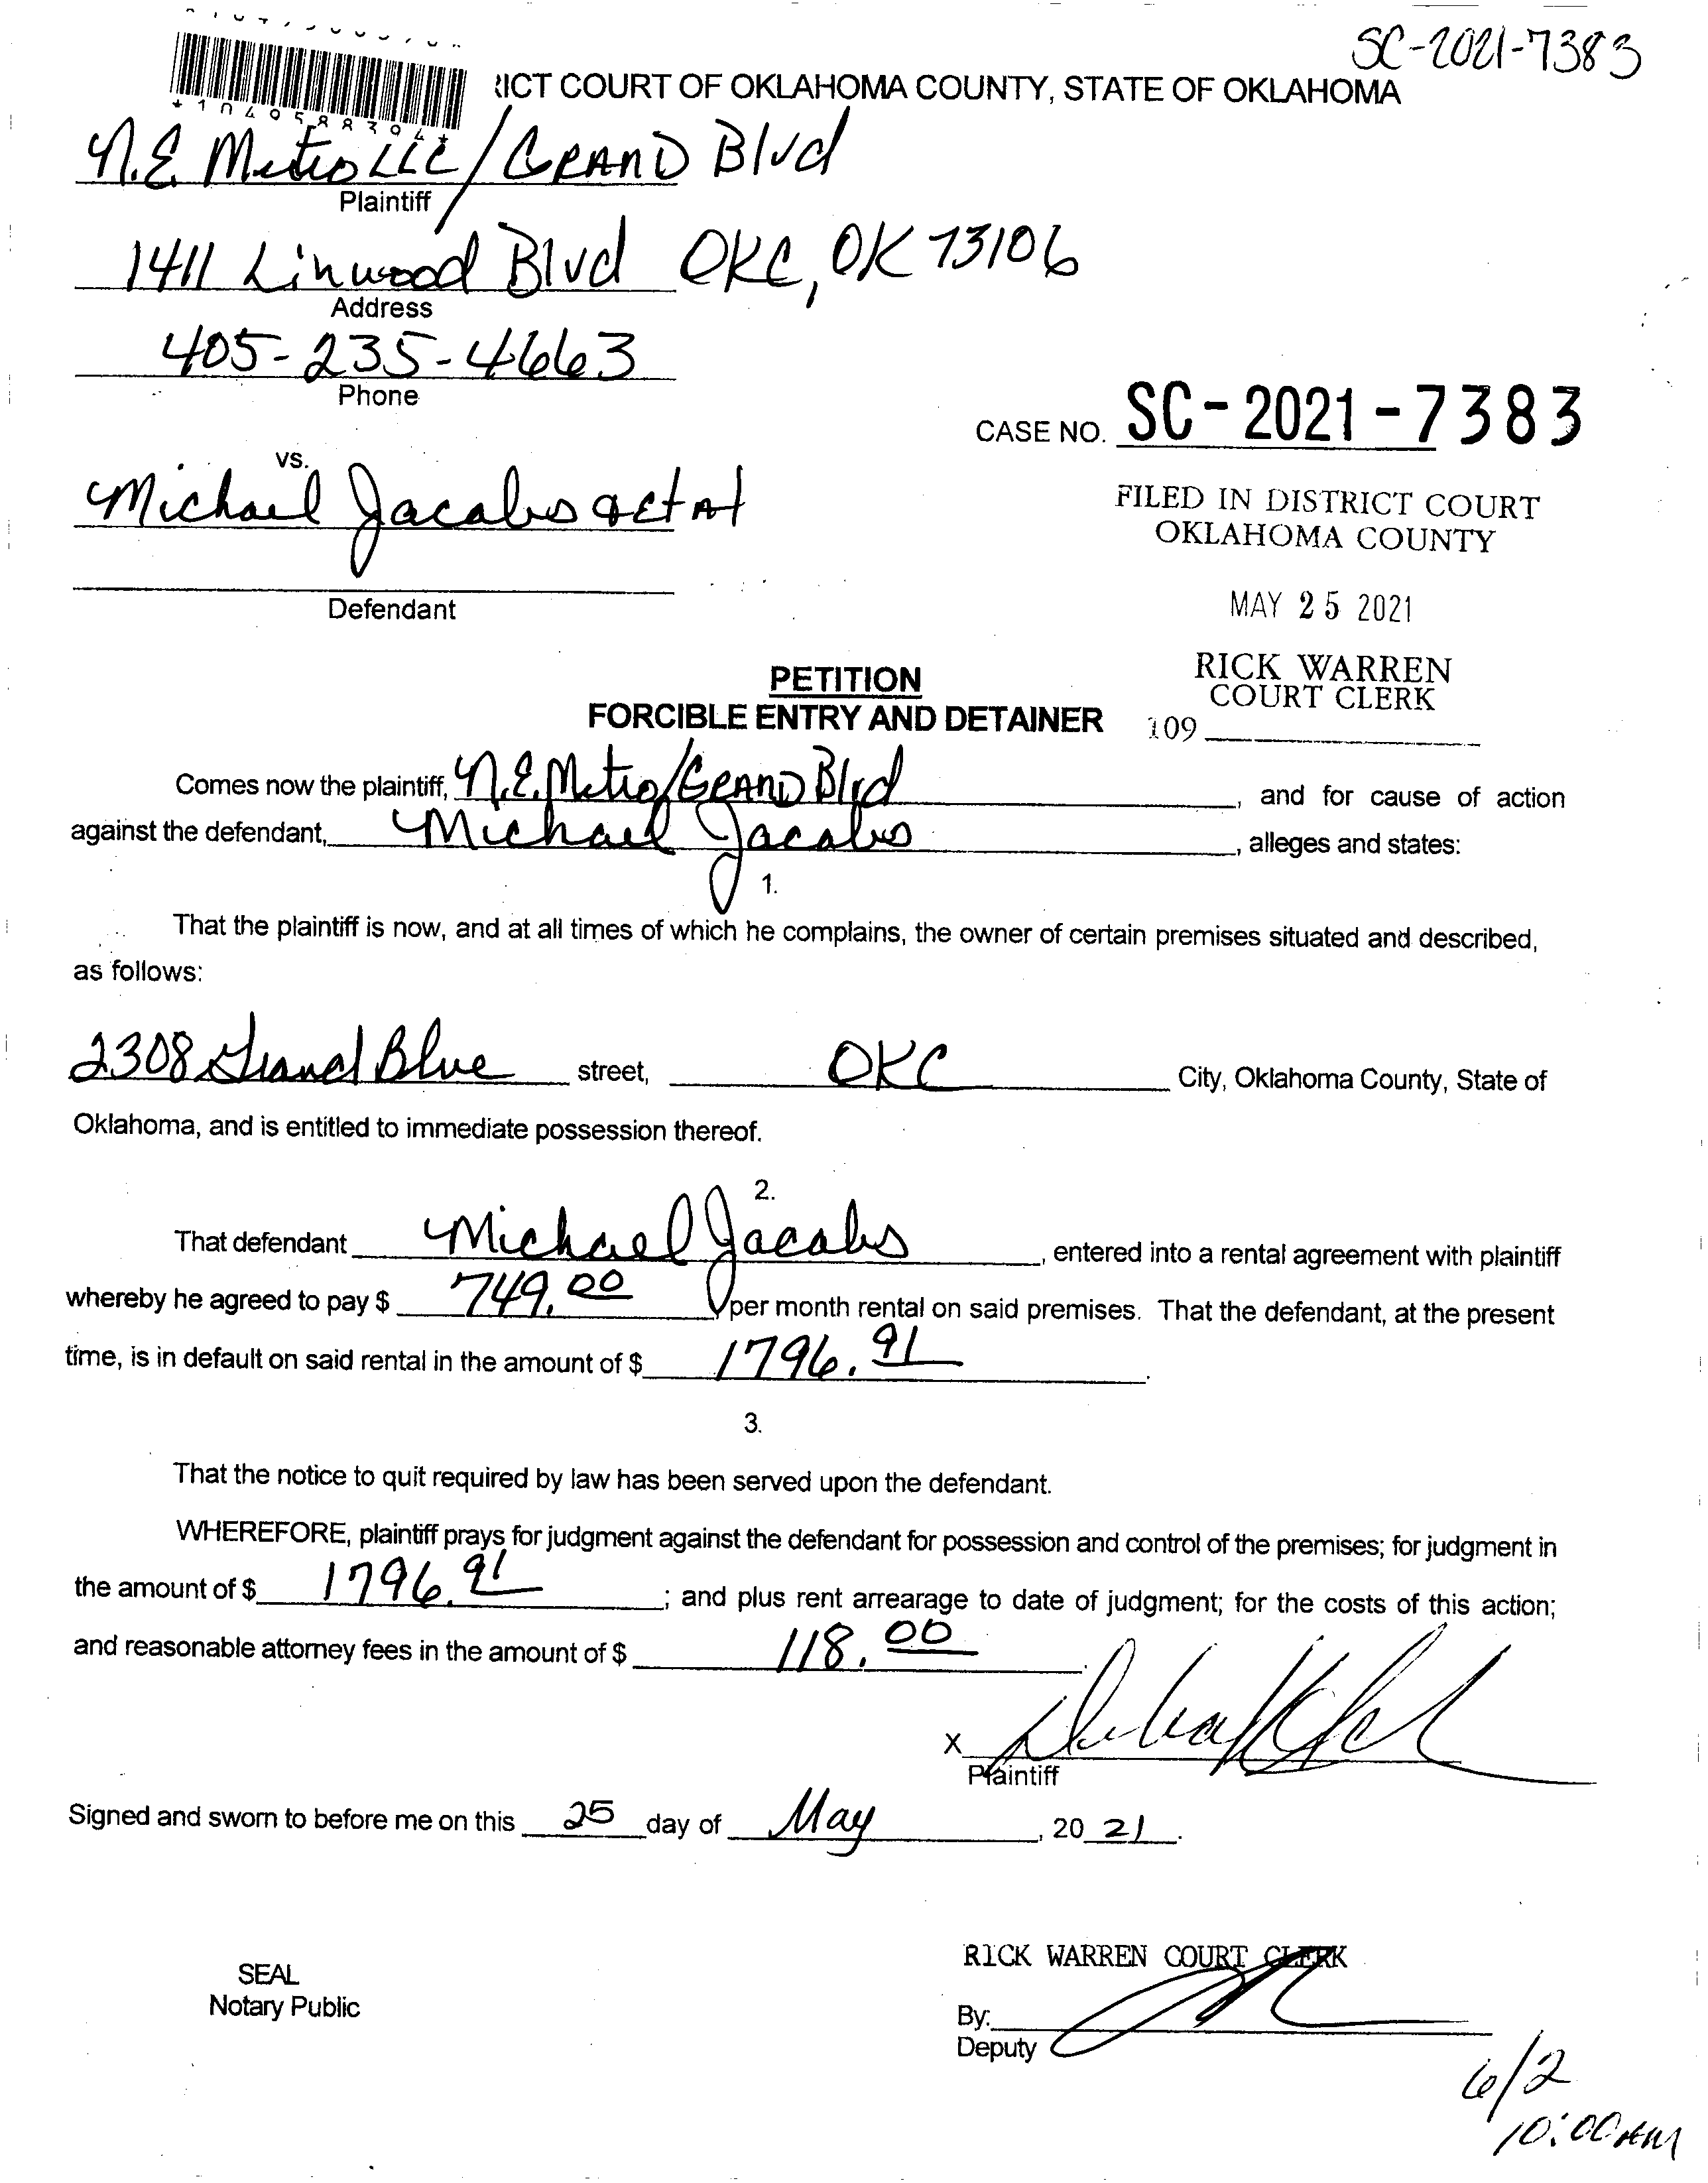 SC-2021-7383
ICT COURT OF OKLAHOMA COUNTY, STATE OF OKLAHOMA
N.E. Metro LLC / GRAND Blvd
Plaintiff
1411 Linwood Blvd OKC, OK 73106
Address
405-235-4663
Phone
CASE NO. SC-2021-7383
vs.
Michael Jacabs
FILED IN DISTRICT COURT
OKLAHOMA COUNTY
Defendant
MAY 25 2021
RICK WARREN
COURT CLERK
109
PETITION
FORCIBLE ENTRY AND DETAINER
Comes now the plaintiff, N.E. Metro/GRAND Blvd, and for cause of action
against the defendant, Michael Jacabs, alleges and states:
1.
That the plaintiff is now, and at all times of which he complains, the owner of certain premises situated and described,
as follows:
2308 Grand Blue street, OKC City, Oklahoma County, State of
Oklahoma, and is entitled to immediate possession thereof.
2.
That defendant Michael Jacabs, entered into a rental agreement with plaintiff
whereby he agreed to pay $ 749.00 per month rental on said premises. That the defendant, at the present
time, is in default on said rental in the amount of $ 1796.91.
3.
That the notice to quit required by law has been served upon the defendant.
WHEREFORE, plaintiff prays for judgment against the defendant for possession and control of the premises; for judgment in
the amount of $ 1796.91; and plus rent arrearage to date of judgment; for the costs of this action;
and reasonable attorney fees in the amount of $ 118.00.
X
Plaintiff
Signed and sworn to before me on this 25 day of May, 20 21.
RICK WARREN COURT CLERK
SEAL
Notary Public
By:
Deputy
6/2
10:00 AM